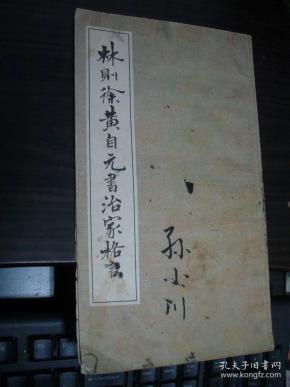 林则徐黄自元书治家格言
孙小川
孔夫子旧书网